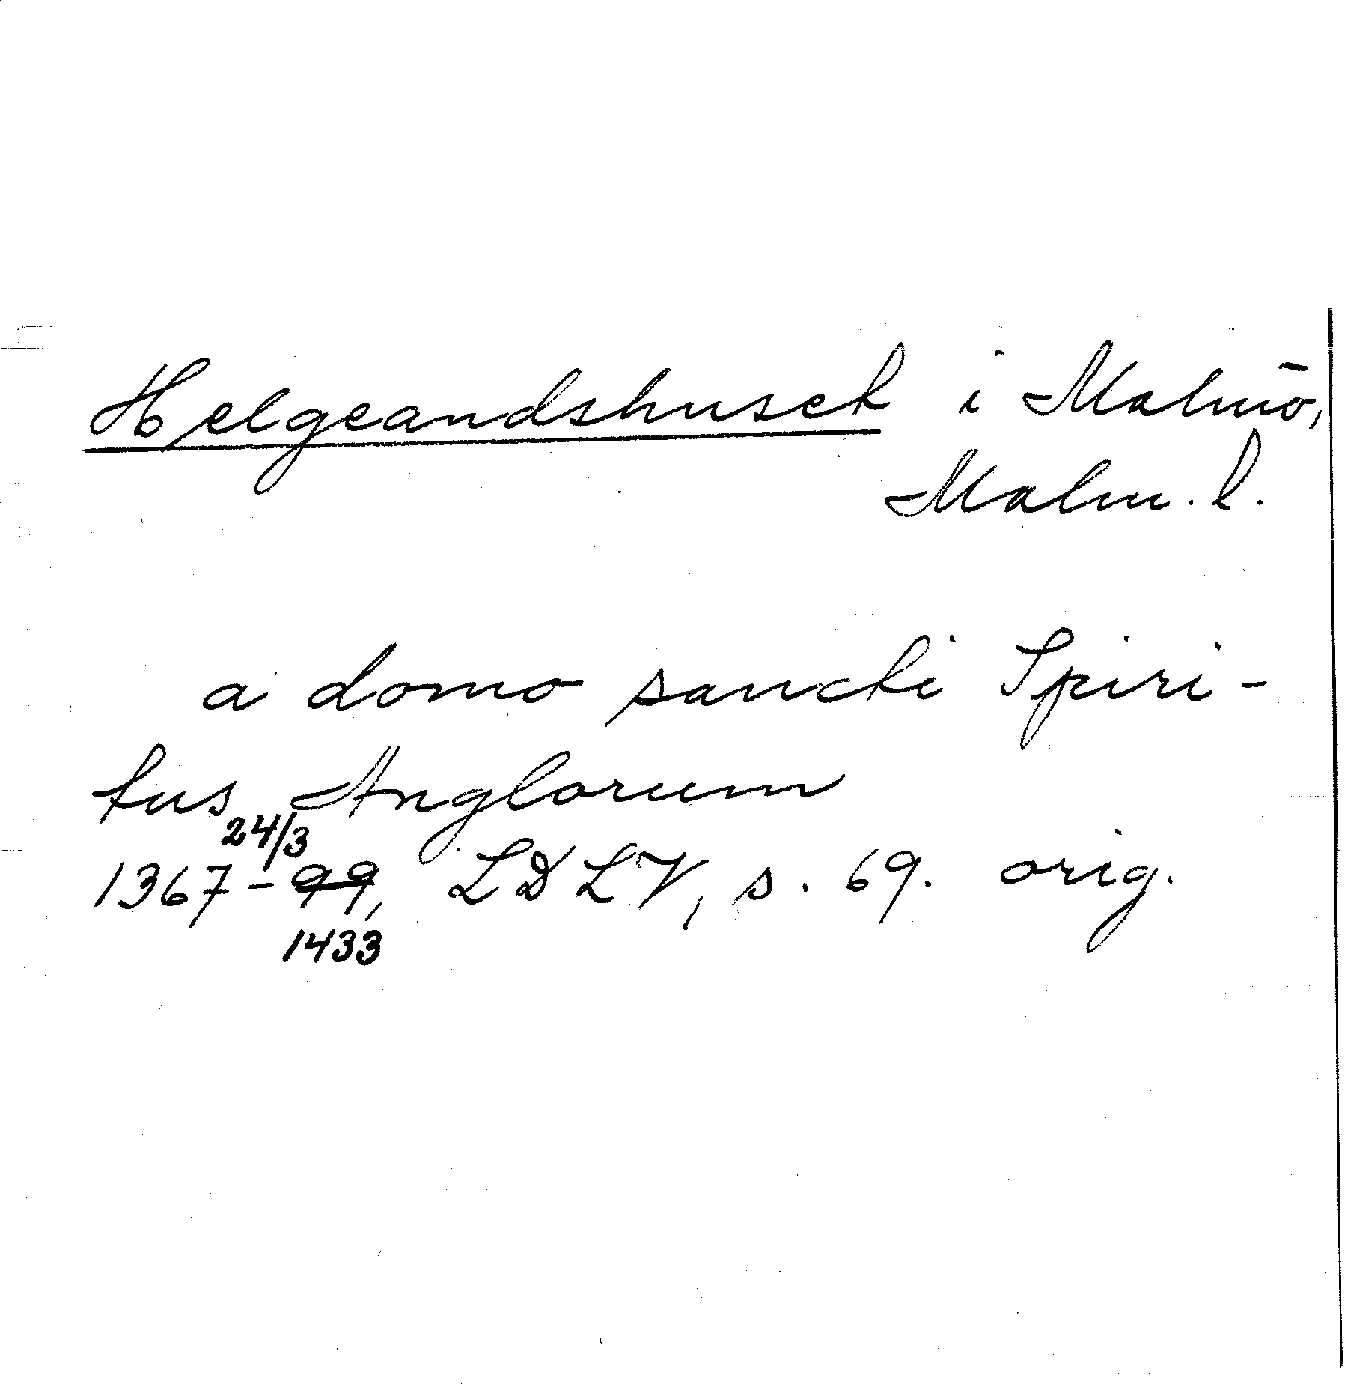 Helgeandshuset i Malmö,
Malm. l.
a domo sancti Spiri-
tus Anglorum
24/3
1367-99, LDLV, s. 69. orig.
1433